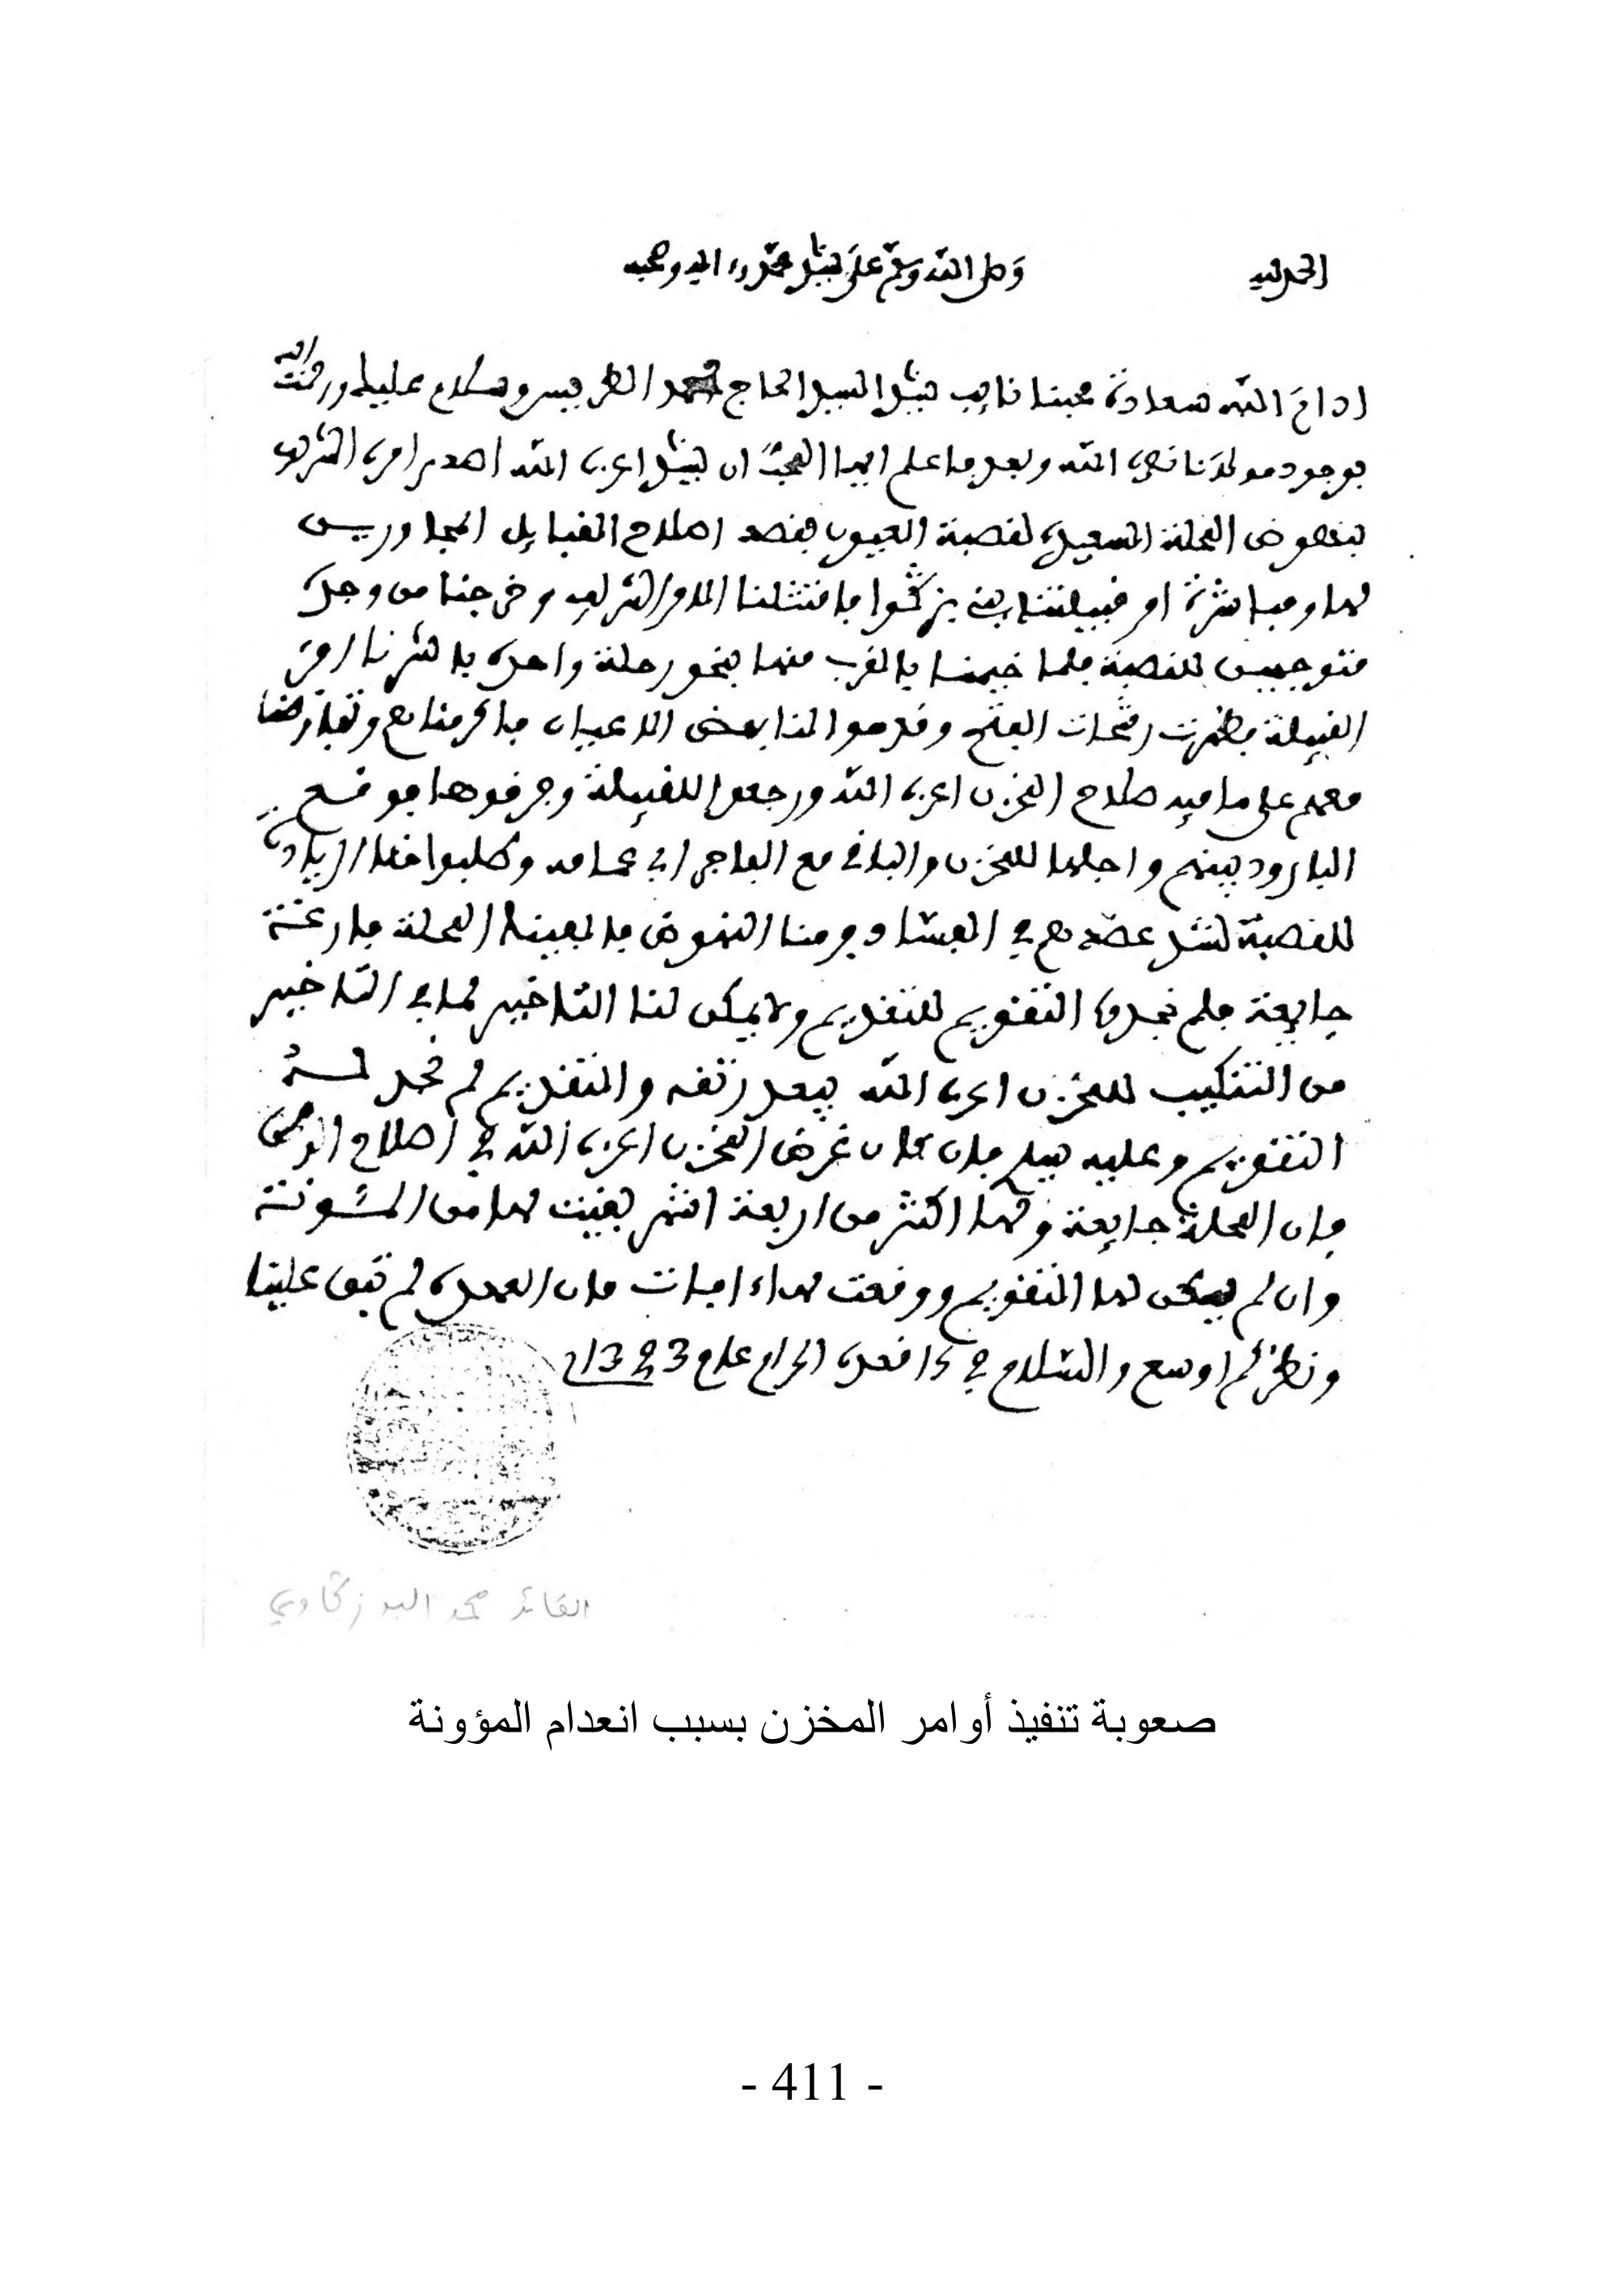 الحمد لله وصلى الله وسلم على سيدنا محمد وءاله وصحبه
ادام الله سعادة محبنا نايب سيدنا السيد الحاج محمد الطريس وسلام عليك ورحمت الله
بوجود مولانا نصره الله وبعد فاعلم ايها المحب ان سيدنا اعزه الله اصدر امره الشريف
بنهوض المحلة السعيدة لقصبة العيون بقصد اصلاح القبايل المجاورين
لها ومباشرة امر قبيلتنا بني يزكوا فامتثلنا الامر الشريف وخرجنا من وجدة
متوجهين للقصبة فلما خيمنا بالقرب منها بنحو رحلة واحدة باشرنا امر
القبيلة فظهرت نفحات الفتح وقدموا لنا بعض الاعيان فاكرمناهم وتفاوضنا
معهم على ما فيه صلاح المخزن اعزه الله ورجعوا للقبيلة وفرقوها فوقع
البارود بينهم واجلها للمخزن والباقي مع الفاجر ابي عمامه وطلبوا منا الزيادة
للقصبة لشد عضدهم في الفساد ورمنا النهوض فالفينا المحلة فارغة
جايعة فلم نجد التقويم للتقديم ولا يمكن لنا التاخير لما في التاخير
من التنكيب للمخزن اعزه الله والتقديم لم نجد له
التقويم وعليه سيدي فان كان غرض المخزن اعزه الله في اصلاح
فان المحلة جايعة ولها اكثر من اربعة اشهر بقيت لها من المئونة
وان لم يمكن لها التقويم ووقعت لها افات فان العهدة لم تبق علينا
ونظركم اوسع والسلام في 5 قعدة الحرام عام 1323
القائد محمد البوزكاوي
صعوبة تنفيذ أوامر المخزن بسبب انعدام المؤونة
- 411 -